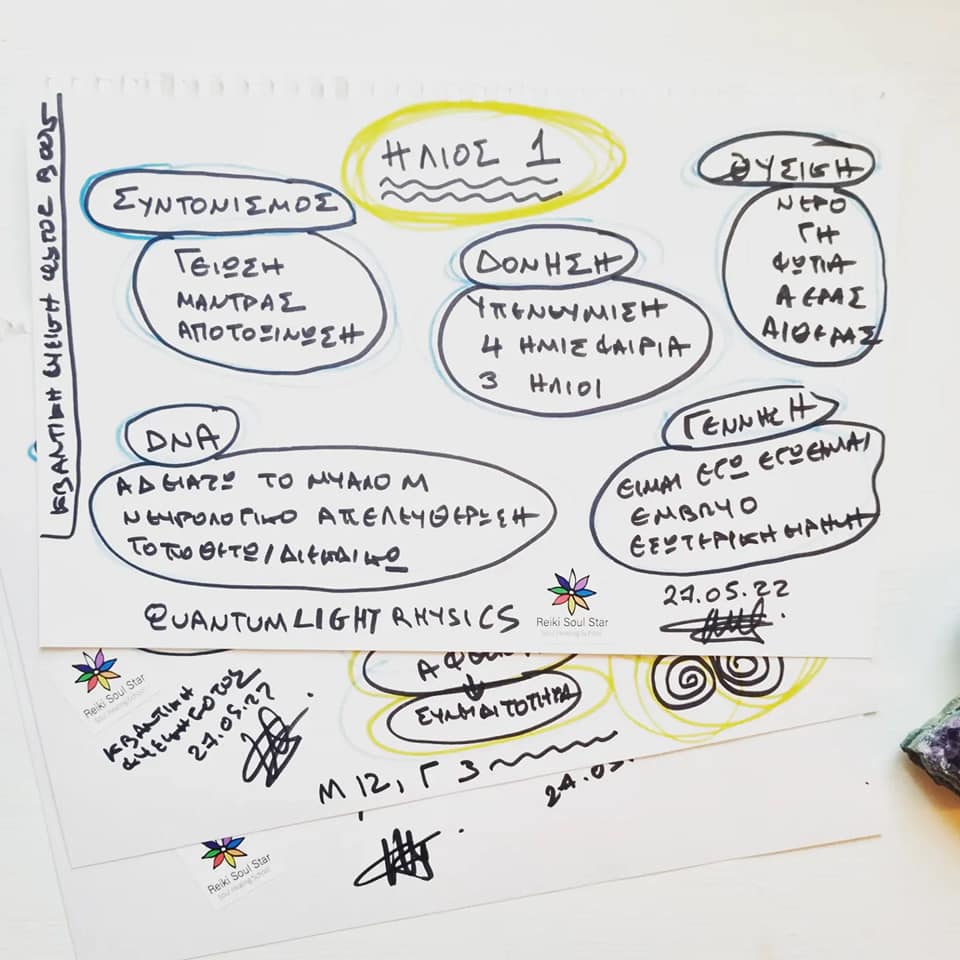 ΚΒΑΝΤΙΚΗ ΦΥΣΙΚΗ ΦΩΤΟΣ
ΗΛΙΟΣ 1
ΣΥΝΤΟΝΙΣΜΟΣ
ΓΕΙΩΣΗ
ΜΑΝΤΡΑΣ
ΑΠΟΤΟΞΙΝΩΣΗ
ΔΟΝΗΣΗ
ΥΠΕΝΘΥΜΙΣΗ
4 ΗΜΙΣΦΑΙΡΙΑ
3 ΗΛΙΟΙ
ΦΥΣΙΚΗ
ΝΕΡΟ
ΓΗ
ΦΩΤΙΑ
ΑΕΡΑΣ
ΑΙΘΕΡΑΣ
DNA
ΑΔΕΙΑΖΩ ΤΟ ΜΥΑΛΟ Μ
ΝΕΥΡΟΛΟΓΙΚΟ ΑΠΕΛΕΥΘΕΡΩΣΗ
ΤΟΠΟΘΕΤΩ/ΔΙΕΚΔΙΚΩ
ΓΕΝΝΗΣΗ
ΕΙΜΑΙ ΕΓΩ ΕΓΩ ΕΙΜΑΙ
ΕΜΒΡΥΟ
ΕΣΩΤΕΡΙΚΗ ΕΙΡΗΝΗ
QUANTUM LIGHT PHYSICS
Reiki Soul Star
Soul Healing School
27.05.22
Reiki Soul Star
Soul Healing School
ΚΒΑΝΤΙΚΗ
ΦΥΣΙΚΗ ΦΩΤΟΣ
27.05.22
Μ 12, Γ 3
Reiki Soul Star
Soul Healing School